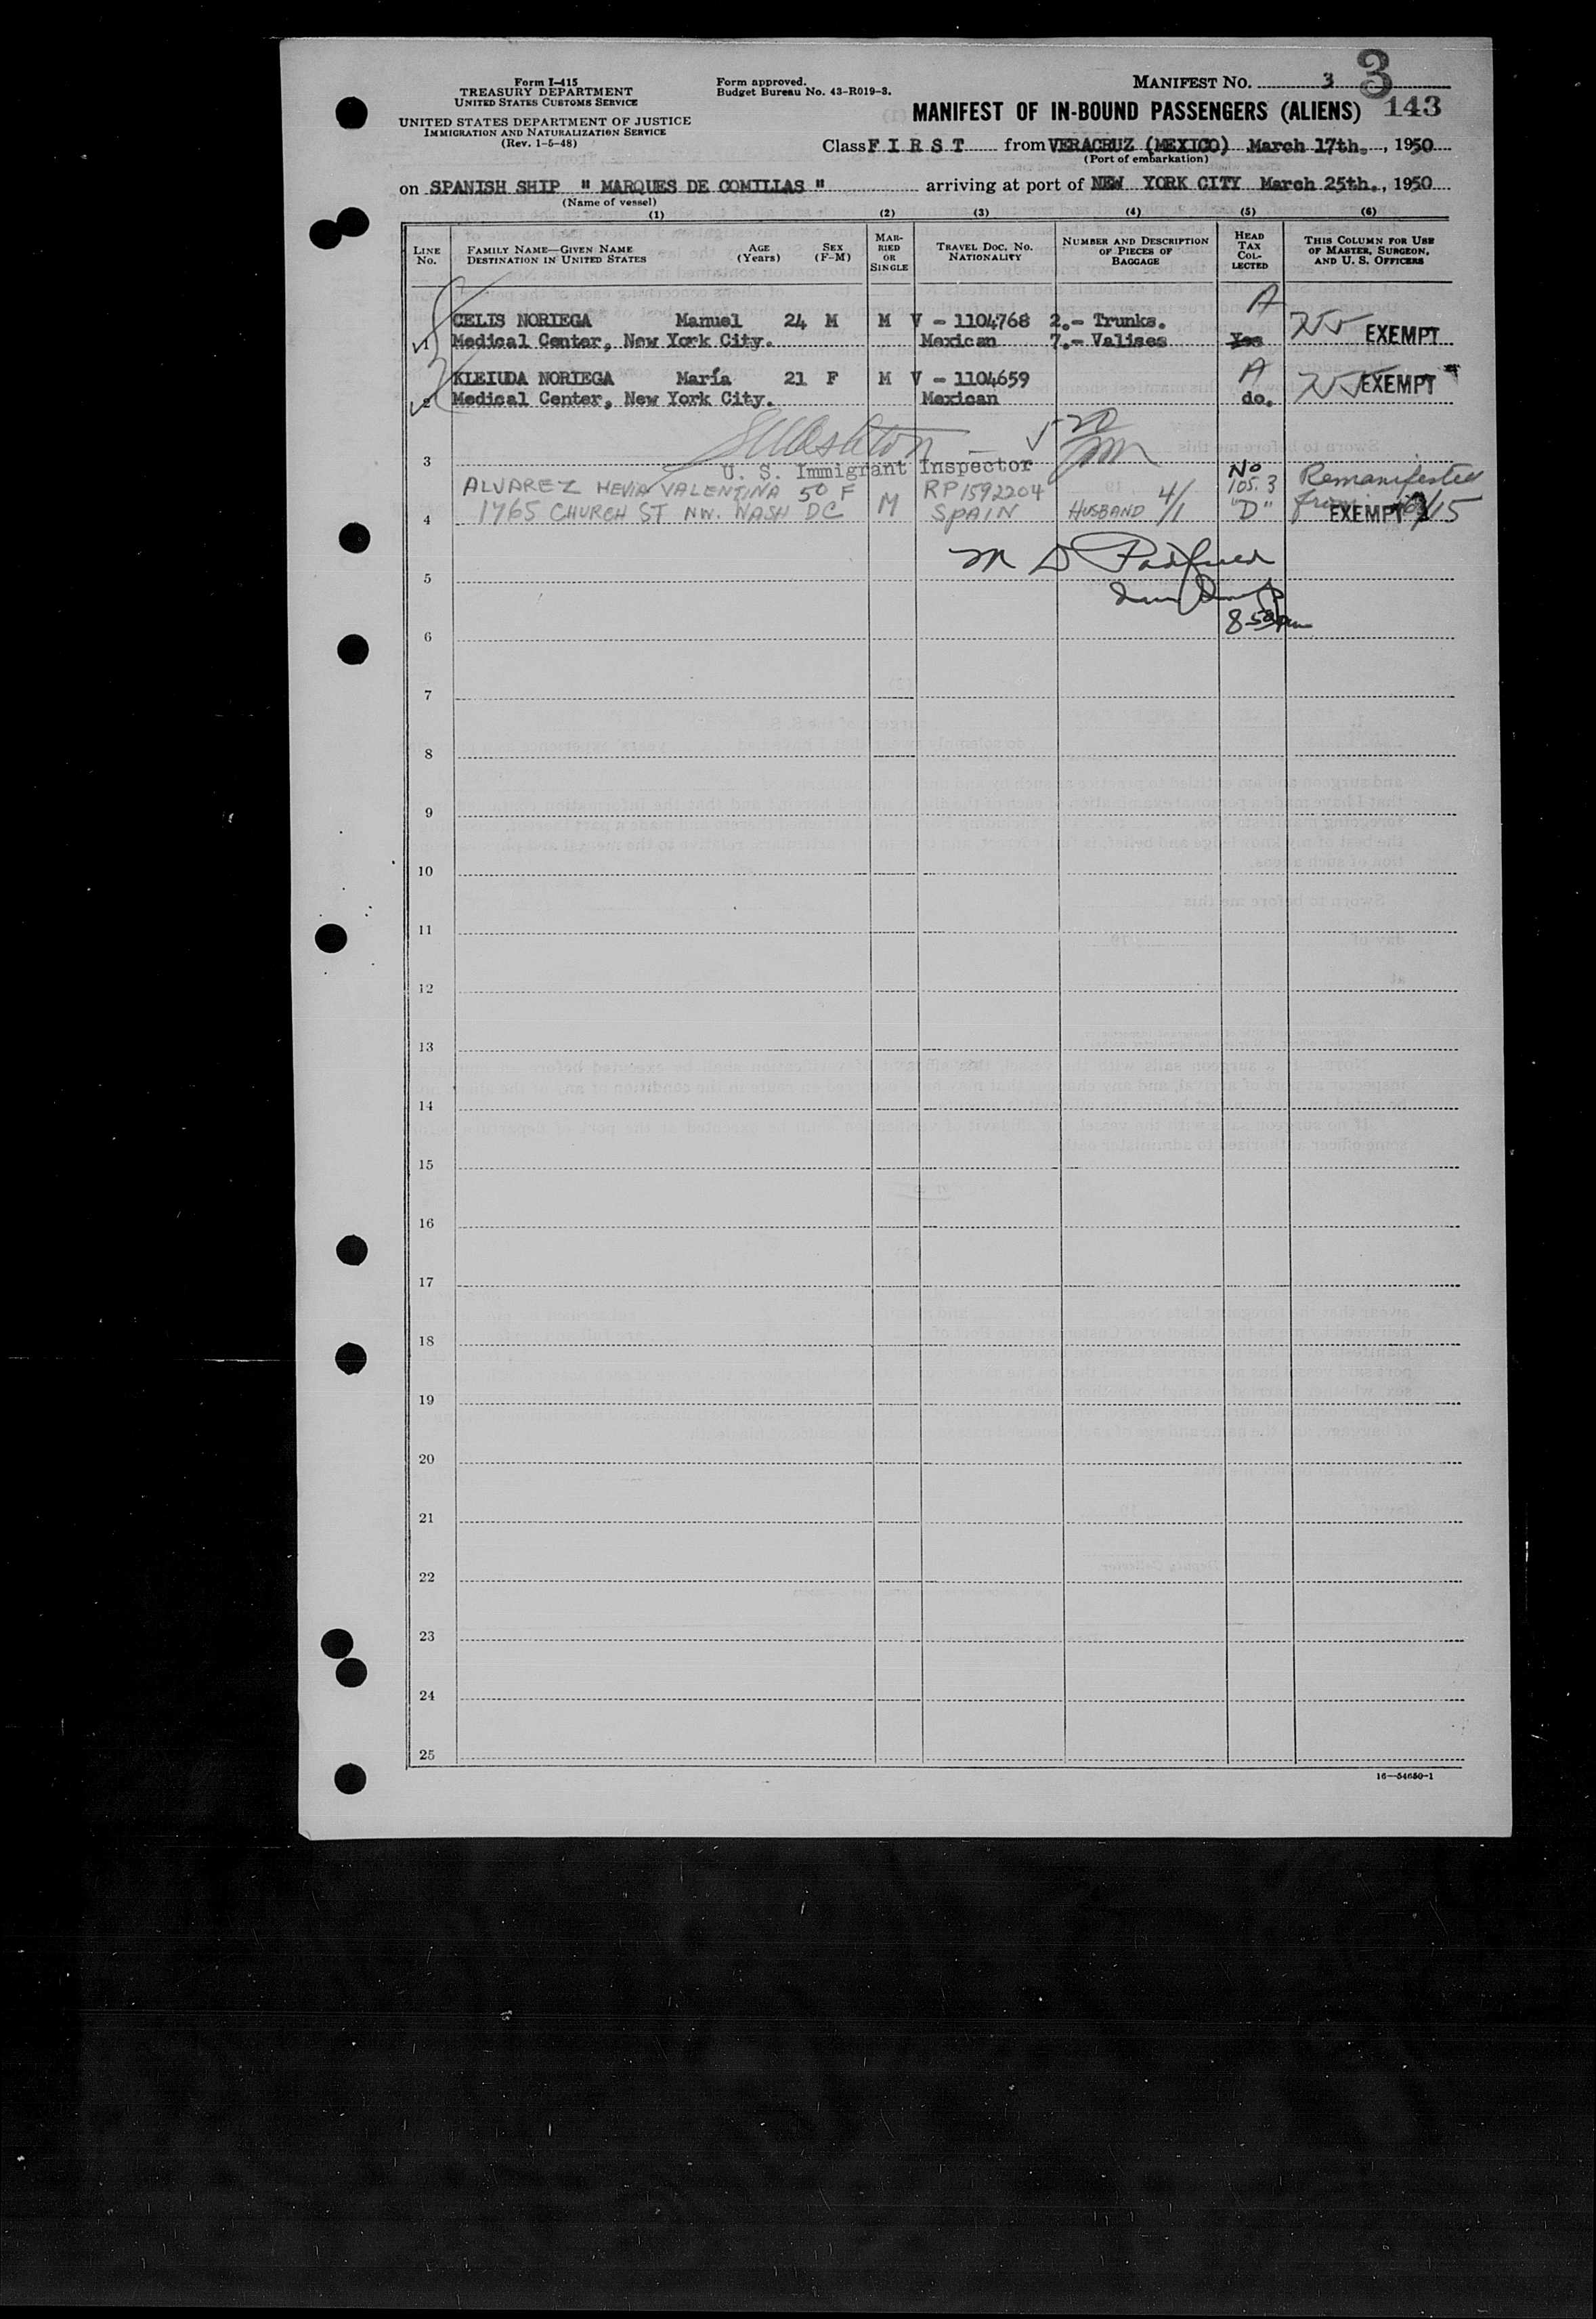 Form I-415
TREASURY DEPARTMENT
UNITED STATES CUSTOMS SERVICE
UNITED STATES DEPARTMENT OF JUSTICE
IMMIGRATION AND NATURALIZATION SERVICE
(Rev. 1-5-48)
Form approved.
Budget Bureau No. 43-R019-3.
MANIFEST NO. 3 3
MANIFEST OF IN-BOUND PASSENGERS (ALIENS) 143
Class F I R S T from VERACRUZ (MEXICO) March 17th., 1950
(Port of embarkation)
on SPANISH SHIP " MARQUES DE COMILLAS " arriving at port of NEW YORK CITY March 25th., 1950
(Name of vessel)
(1) (2) (3) (4) (5) (6)
LINE No.
FAMILY NAME—GIVEN NAME
DESTINATION IN UNITED STATES
AGE (Years)
SEX (F-M)
MARRIED OR SINGLE
TRAVEL DOC. NO.
NATIONALITY
NUMBER AND DESCRIPTION OF PIECES OF BAGGAGE
HEAD TAX COLLECTED
THIS COLUMN FOR USE OF MASTER, SURGEON, AND U. S. OFFICERS
A
CELIS NORIEGA Manuel 24 M M V - 1104768 2.- Trunks.
1 Medical Center, New York City. Mexican 7.- Valises Yes EXEMPT
A
KLEIUDA NORIEGA María 21 F M V - 1104659 EXEMPT
2 Medical Center, New York City. Mexican do.
3
U. S. Immigrant Inspector
ALVAREZ HEVIA VALENTINA 50 F M RP 1592204 4/1 No 105.3 Remanifested
4 1765 CHURCH ST NW. WASH DC SPAIN HUSBAND "D" from EXEMPT
5
6
7
8
9
10
11
12
13
14
15
16
17
18
19
20
21
22
23
24
25
16—54650-1